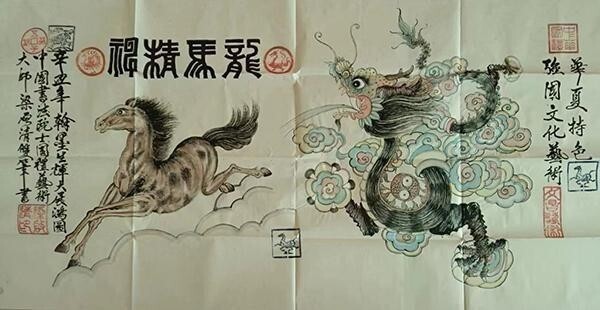 華夏特色
强國文化藝術
龍馬精神
辛丑年翰墨生輝大展鴻圖
中國書法院士國禮藝術
大師梁 清 筆書